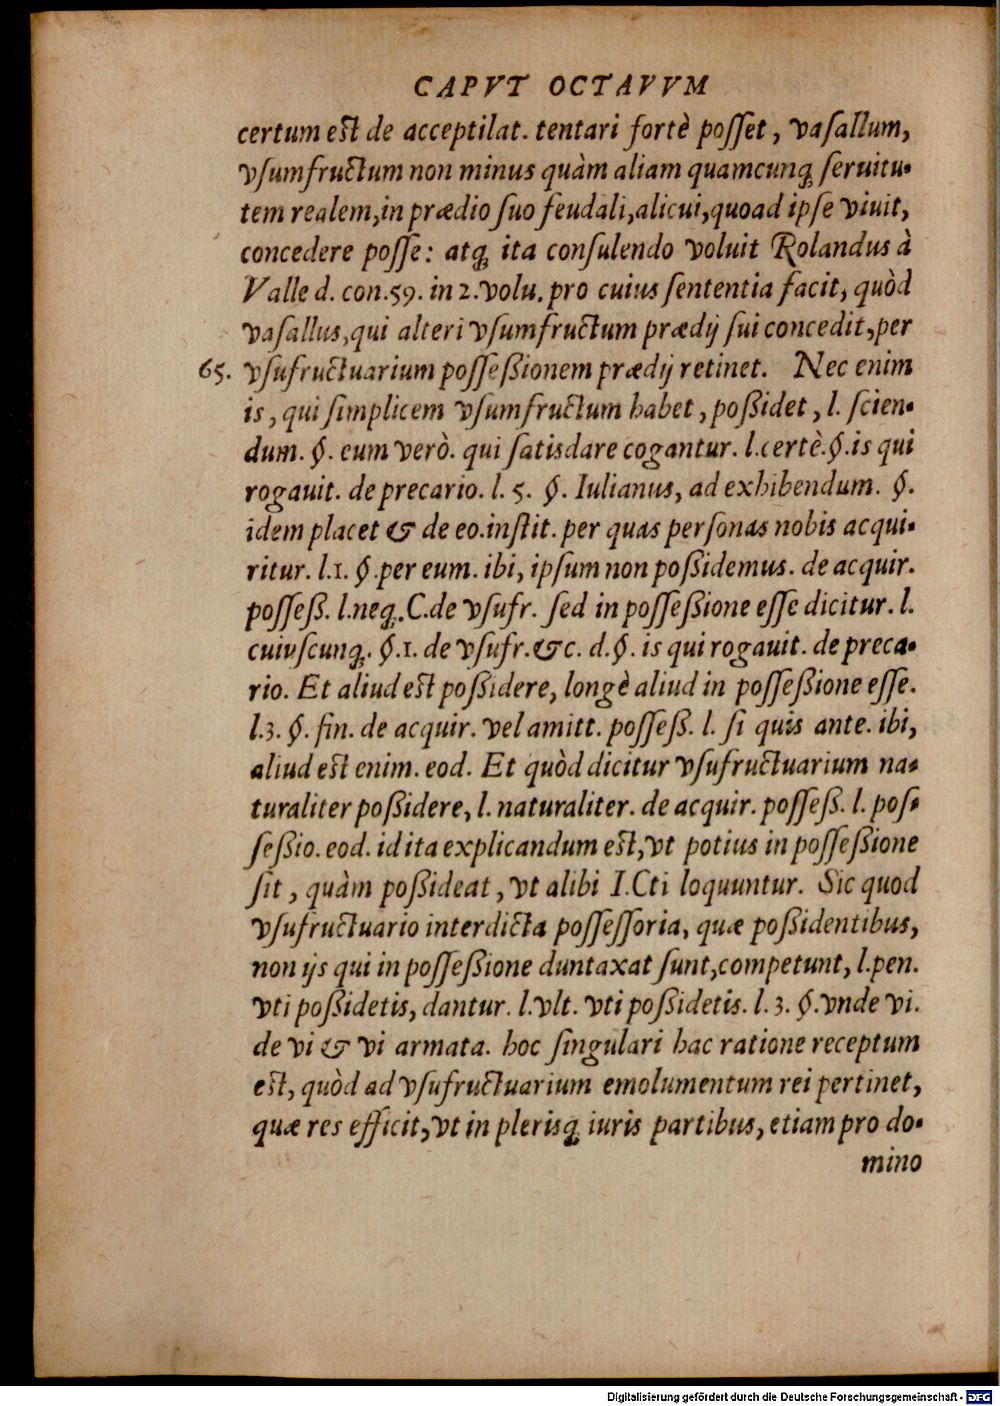 CAPVT OCTAVVM
certum est de acceptilat. tentari fortè posset, vasallum,
vsumfructum non minus quàm aliam quamcunq; seruitu-
tem realem, in prædio suo feudali, alicui, quoad ipse viuit,
concedere posse: atq; ita consulendo voluit Rolandus à
Valle d. con. 59. in 2. volu. pro cuius sententia facit, quòd
vasallus, qui alteri vsumfructum prædij sui concedit, per
65. vsufructuarium posseßionem prædij retinet. Nec enim
is, qui simplicem vsumfructum habet, poßidet, l. scien-
dum. §. eum verò. qui satisdare cogantur. l. certè. §. is qui
rogauit. de precario. l. 5. §. Iulianus, ad exhibendum. §.
idem placet & de eo. instit. per quas personas nobis acqui-
ritur. l. 1. §. per eum. ibi, ipsum non poßidemus. de acquir.
posseß. l. neq;. C. de vsufr. sed in possessione esse dicitur. l.
cuiuscunq;. §. 1. de vsufr. &c. d. §. is qui rogauit. de preca-
rio. Et aliud est poßidere, longè aliud in possessione esse.
l. 3. §. fin. de acquir. vel amitt. posseß. l. si quis ante. ibi,
aliud est enim. eod. Et quòd dicitur vsufructuarium na-
turaliter poßidere, l. naturaliter. de acquir. posseß. l. pos-
seßio. eod. id ita explicandum est, vt potius in posseßione
sit, quàm poßideat, vt alibi I. Cti loquuntur. Sic quod
vsufructuario interdicta possessoria, quæ poßidentibus,
non ijs qui in posseßione duntaxat sunt, competunt, l. pen.
vti poßidetis, dantur. l. vlt. vti poßidetis. l. 3. §. vnde vi.
de vi & vi armata. hoc singulari hac ratione receptum
est, quòd ad vsufructuarium emolumentum rei pertinet,
quæ res efficit, vt in plerisq; iuris partibus, etiam pro do-
mino
Digitalisierung gefördert durch die Deutsche Forschungsgemeinschaft - DFG